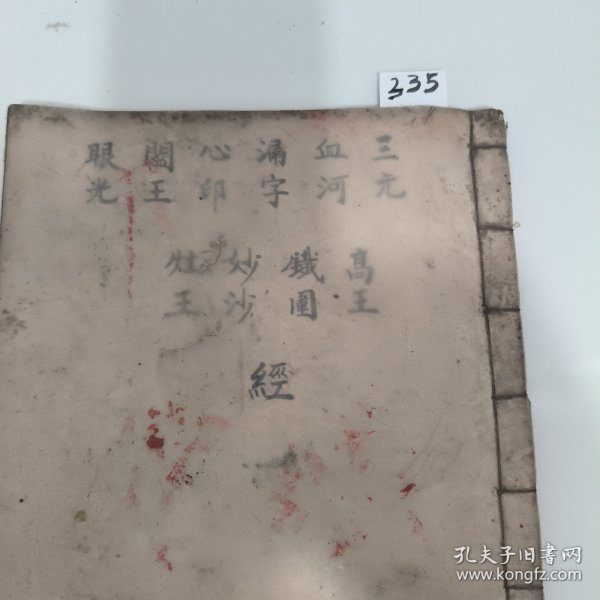 335
三元
血河
漏字
心印
閻王
眼光
高王
鐵圍
妙沙
灶王
經
孔夫子旧书网
www.kongfz.com